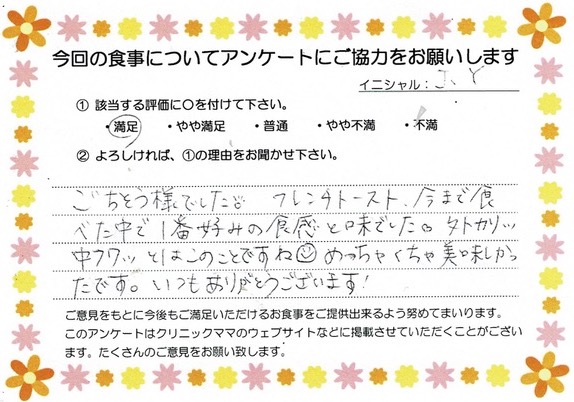 今回の食事についてアンケートにご協力をお願いします
イニシャル：J. Y
① 該当する評価に〇を付けて下さい。
・満足 ・やや満足 ・普通 ・やや不満 ・不満
② よろしければ、①の理由をお聞かせ下さい。
ごちそう様でした。 フレンチトースト、今まで食
べた中で1番好みの食感と味でした。外カリッ
中フワッとはこのことですね☺めっちゃくちゃ美味しかっ
たです。いつもありがとうございます!
ご意見をもとに今後もご満足いただけるお食事をご提供出来るよう努めてまいります。
このアンケートはクリニックママのウェブサイトなどに掲載させていただくことがござい
ます。たくさんのご意見をお願い致します。